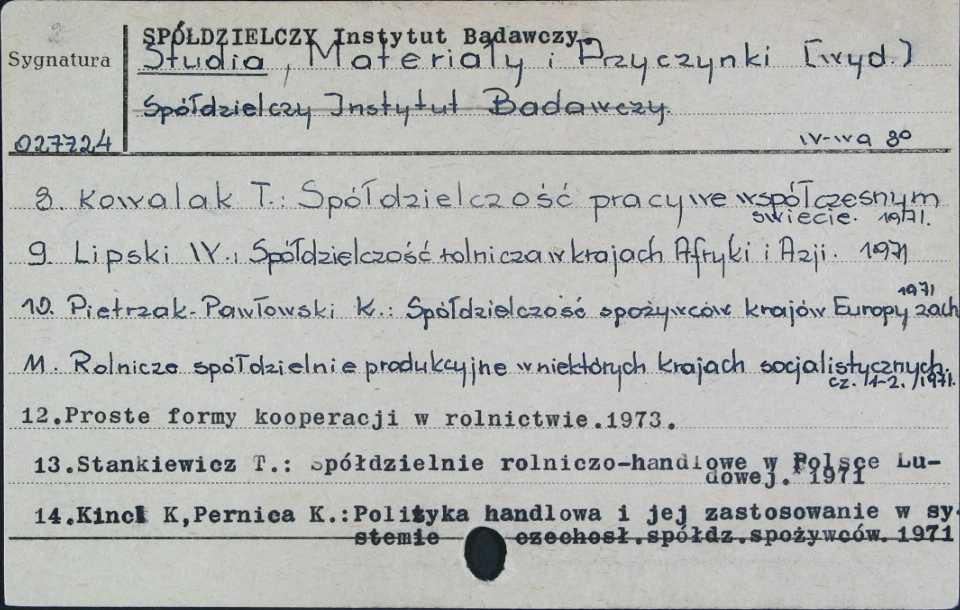 2
SPÓŁDZIELCZY Instytut Badawczy
Sygnatura
Studia, Materiały i Przyczynki [wyd.]
Spółdzielczy Instytut Badawczy.
027724
W-wa 80
8. Kowalak T.: Spółdzielczość pracy we współczesnym
świecie. 1971.
9. Lipski W.: Spółdzielczość rolnicza w krajach Afryki i Azji. 1971
1971
10. Pietrzak-Pawłowski K.: Spółdzielczość spożywców krajów Europy zach
11. Rolnicze spółdzielnie produkcyjne w niektórych krajach socjalistycznych.
cz. 1-2. 1971.
12.Proste formy kooperacji w rolnictwie.1973.
13.Stankiewicz T.: Spółdzielnie rolniczo-handlowe w Polsce Lu-
dowej. 1971
14.Kincl K,Pernica K.:Polityka handlowa i jej zastosowanie w sy-
stemie czechosł.spółdz.spożywców. 1971